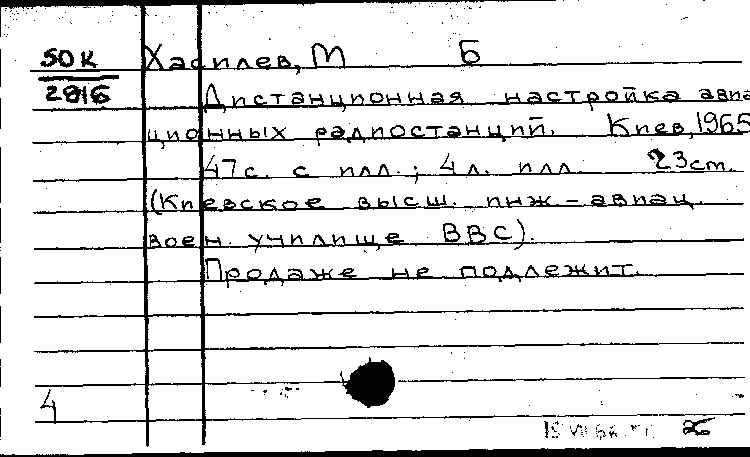 50К Хасилев, М Б
2816 Дистанционная настройка авиа
ционных радиостанций. Киев, 1965
47с. с илл.; 4л. илл. 23см.
(Киевское высш. инж-авиац.
воен. училище ВВС).
Продаже не подлежит.
4